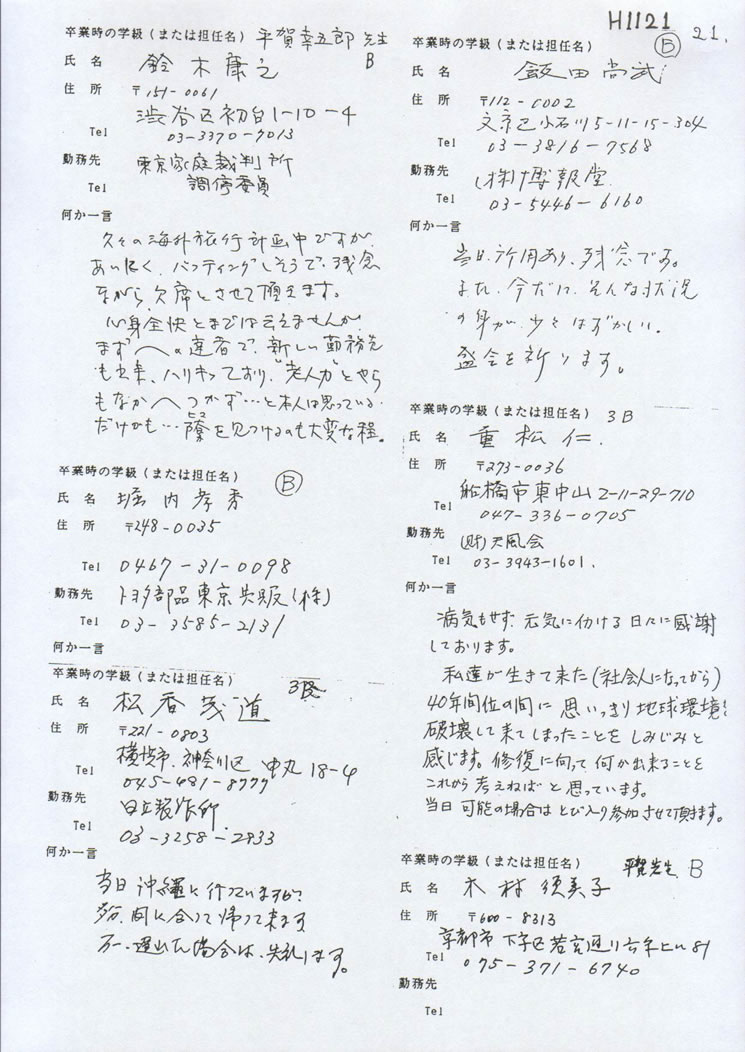 H1121
21.
卒業時の学級(または担任名) 平賀幸五郎 先生
B
氏 名 鈴木康之
住 所 〒151-0061
渋谷区初台1-10-4
Tel 03-3370-9013
勤務先 東京家庭裁判所
Tel 調停委員
何か一言
久々の海外旅行計画中ですが、
あいにく、バッティングしそうで、残念
ながら、欠席とさせて頂きます。
心身全快とまでは云えませんが
まずへの達者で、新しい勤務先
も出来、ハリキっており、"老人力"とやら
もなかへつかず…と本人は思っている
だけかも…隙を見つけるのも大変な程。
卒業時の学級(または担任名)
B
氏 名 堀内孝
住 所 〒248-0035
Tel 0467-31-0098
勤務先 トヨタ部品東京共販(株)
Tel 03-3585-2131
何か一言
卒業時の学級(または担任名) 3B
氏 名 松香茂道
住 所 〒221-0803
横浜市、神奈川区 中丸18-4
Tel 045-481-8777
勤務先 日立製作所
Tel 03-3258-2833
何か一言
当日沖縄に行っていますが
多分、間に合って帰って来ます
万一、遅れた場合は、失礼します。
卒業時の学級(または担任名)
B
氏 名 飯田尚武
住 所 〒112-0002
文京区小石川5-11-15-304
Tel 03-3816-7568
勤務先 (株)博報堂
Tel 03-5446-6160
何か一言
当日、所用あり、残念です。
また、今だに、そんな状況
の身が、少々はずかしい。
盛会を祈ります。
卒業時の学級(または担任名) 3B
氏 名 重松仁
住 所 〒273-0036
船橋市東中山2-11-29-710
Tel 047-336-0705
勤務先 (財)天風会
Tel 03-3943-1601.
何か一言
病気もせず、元気に行ける日々に感謝
しております。
私達が生きて来た(社会人になってから)
40年間位の間に思いっきり地球環境を
破壊して来てしまったことをしみじみと
感じます。修復に向って何か出来ることを
これから考えねばと思っています。
当日可能の場合はとび入り参加させて頂きます。
卒業時の学級(または担任名) 平賀先生 B
氏 名 木村須美子
住 所 〒600-8313
京都市下京区若宮通り六条上ル81
Tel 075-371-6740
勤務先
Tel